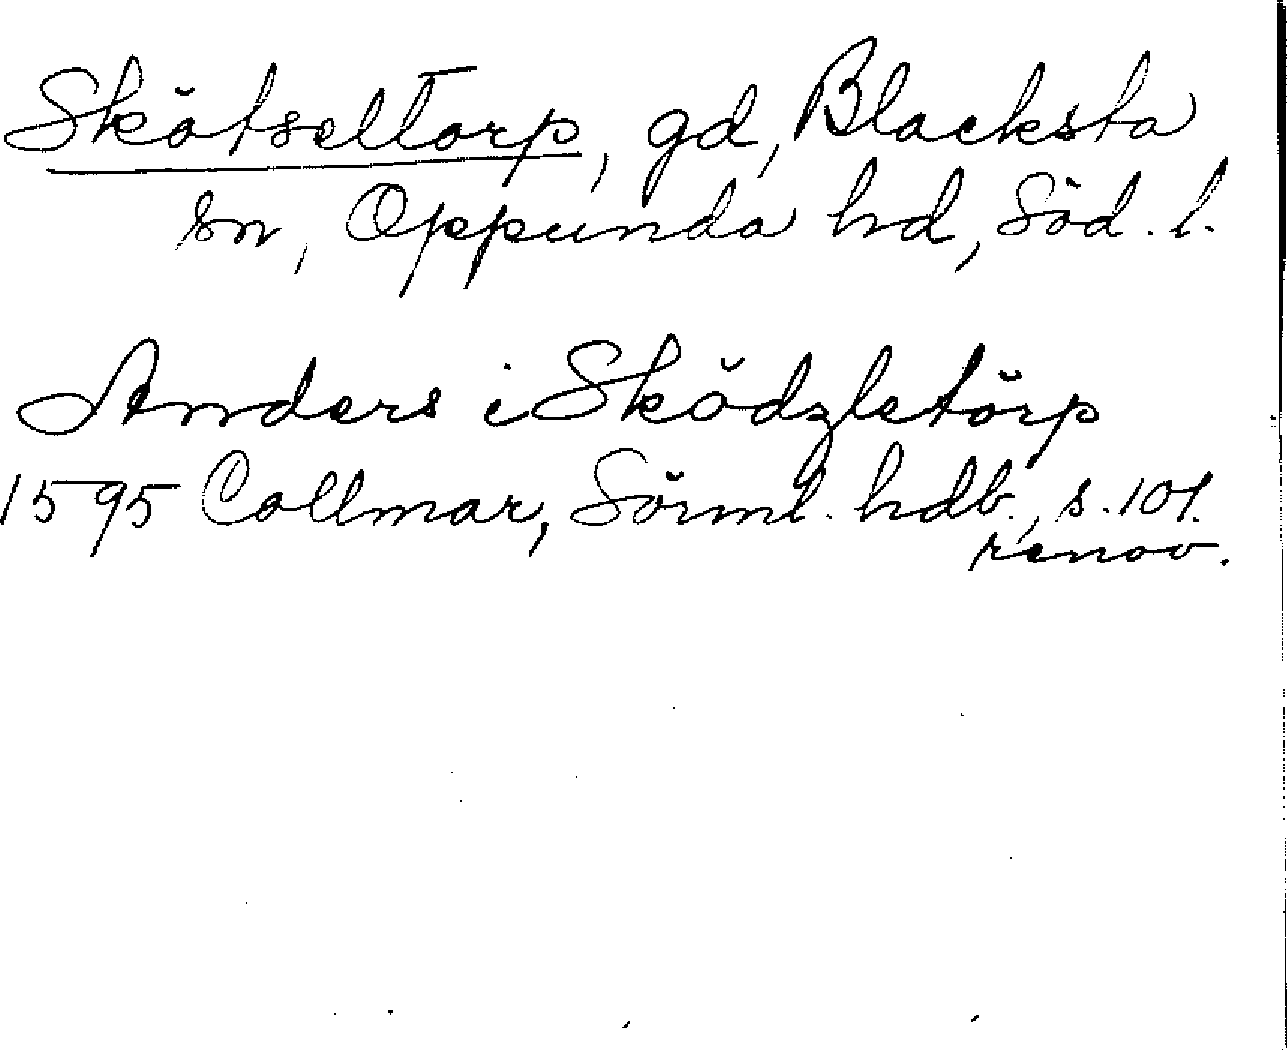 Skötseltorp, gd, Blacksta
sn, Oppunda hd, Söd. l.
Anders i Sködzletörp
1595 Collmar, Sörml. hdb., s. 101.
renov.